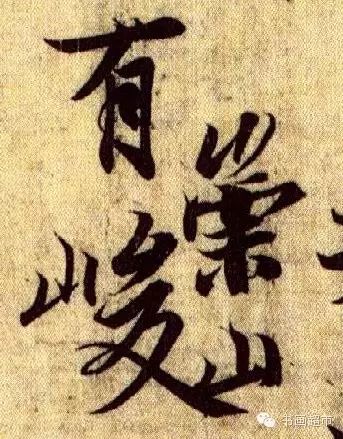 崇山
有峻
书画超市